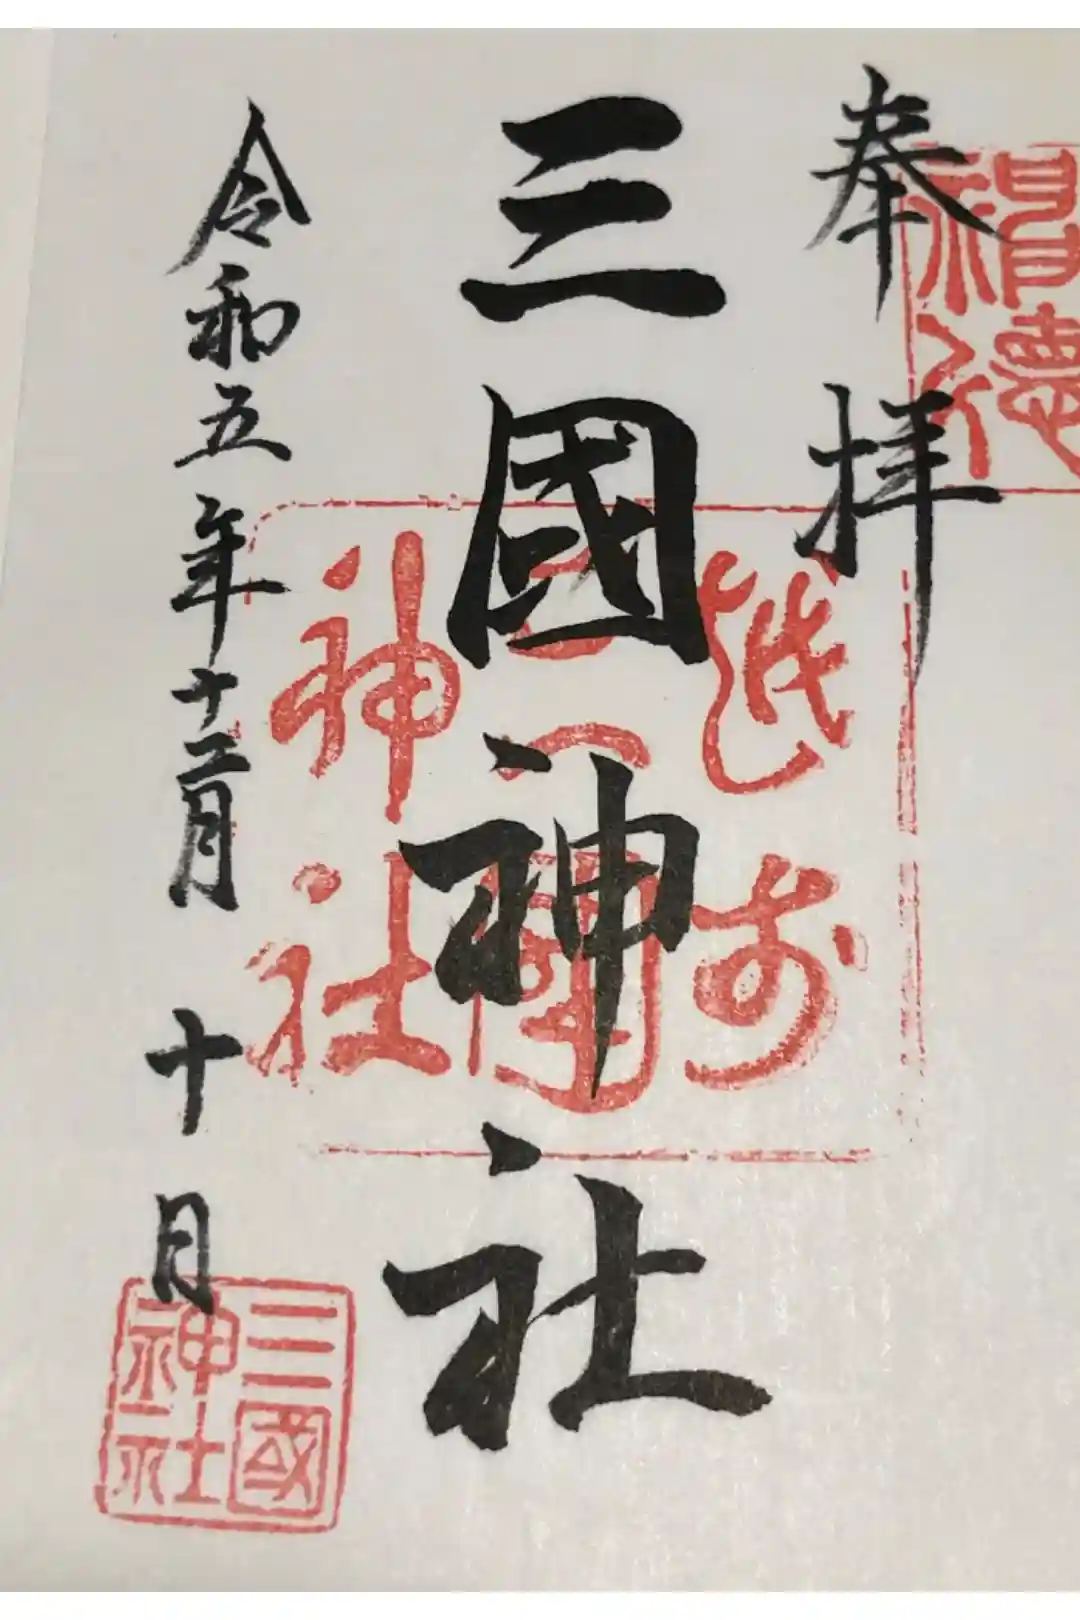 奉拝
三國神社
令和五年十二月十日
越前
三國
神社
三國
神社